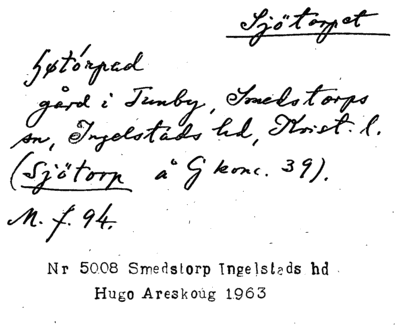 Sjötorpet
ʃøtórpəd
gård i Tunby, Smedstorps
sn, Ingelstads hd, Krist. l.
(Sjötorp å G konc. 39).
M. f. 94.
Nr 5008 Smedstorp Ingelstads hd
Hugo Areskoug 1963